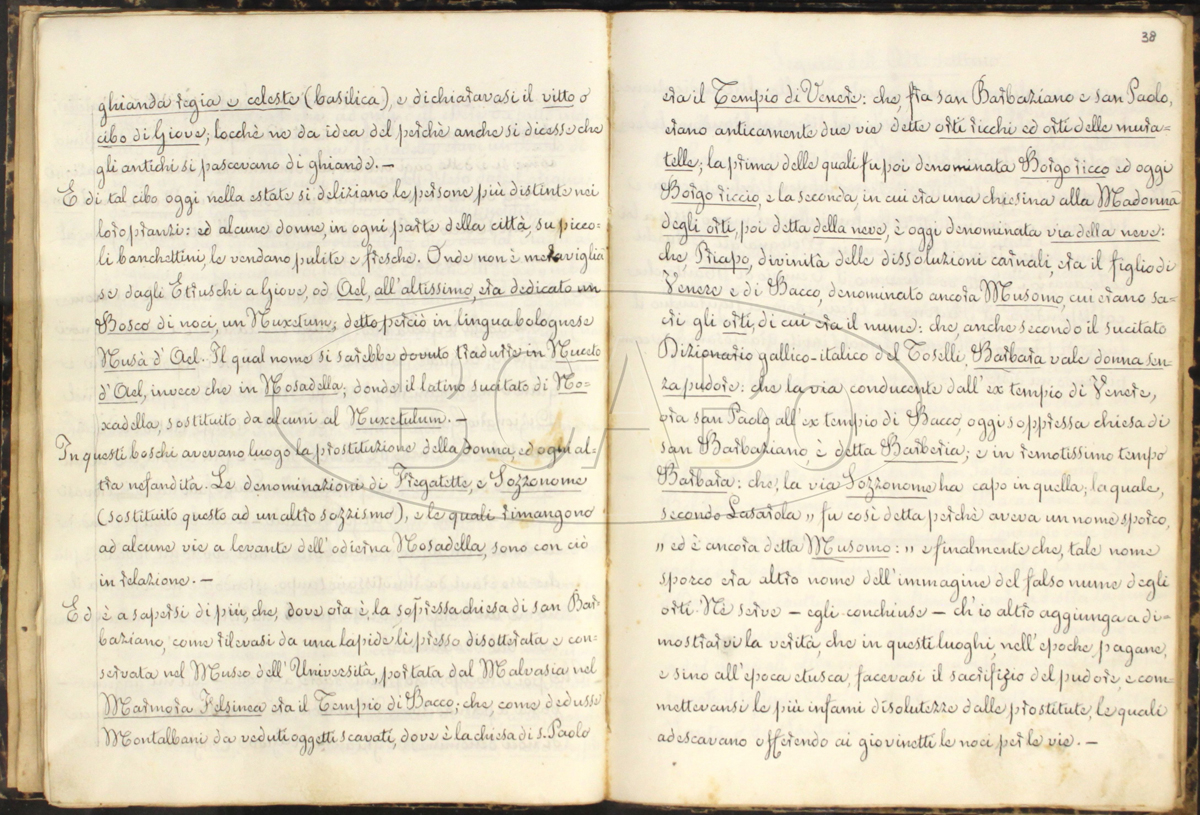 ghianda regia e celeste (basilica), e dichiaravasi il vitto o
cibo di Giove; locchè ne da idea del perchè anche si dicesse che
gli antichi si pascevano di ghiande. —
E di tal cibo oggi nella estate si deliziano le persone più distinte nei
loro pranzi: ed alcune donne, in ogni parte della città, su picco=
li banchettini, le vendano pulite e fresche. Onde non è meraviglia
se dagli Etruschi a Giove, od Ael, all'altissimo, era dedicato un
Bosco di noci, un Nuxetum; detto perciò in lingua bolognese
Nusà d' Ael. Il qual nome si sarebbe dovuto tradurre in Nuceto
d' Ael, invece che in Nosadella; donde il latino sucitato di No=
xadella, sostituito da alcuni al Nuxetulum. —
In questi boschi avevano luogo la prostituzione della donna, ed ogni al=
tra nefandità. Le denominazioni di Fregatette, e Sozzonome
(sostituito questo ad un altro sozzismo), e le quali rimangono
ad alcune vie a levante dell'odierna Nosadella, sono con ciò
in relazione. —
Ed è a sapersi di più, che, dove ora è, la soppressa chiesa di san Bar=
baziano, come rilevasi da una lapide lì presso disotterata e con=
servata nel Museo dell' Università, portata dal Malvasia nel
Marmora Felsinea era il Tempio di Bacco; che, come dedusse
Montalbani da veduti oggetti scavati, dove è la chiesa di s. Paolo
38
era il Tempio di Venere: che, fra san Barbaziano e san Paolo,
erano anticamente due vie dette orti ricchi ed orti delle mura=
telle; la prima delle quali fu poi denominata Borgo ricco ed oggi
Borgo riccio, e la seconda, in cui era una chiesina alla Madonna
degli orti, poi detta della neve, è oggi denominata via della neve:
che, Priapo, divinità delle dissoluzioni carnali, era il figlio di
Venere e di Bacco, denominato ancora Musomo, cui erano sa=
cri gli orti, di cui era il nume: che, anche secondo il sucitato
Dizionario gallico-italico del Toselli, Barbara vale donna sen=
za pudore: che la via conducente dall' ex tempio di Venere,
ora san Paolo all' ex tempio di Bacco, oggi soppressa chiesa di
san Barbaziano, è detta Barberia; e in remotissimo tempo
Barbara: che, la via Sozzonome ha capo in quella; la quale,
secondo Lasarola „ fu così detta perchè aveva un nome sporco,
„ ed è ancora detta Musomo: „ e finalmente che, tale nome
sporco era altro nome dell'immagine del falso nume degli
orti. Nè serve — egli conchiuse — ch'io altro aggiunga a di=
mostrarvi la verità, che in questi luoghi, nell'epoche, pagane,
e sino all'epoca etusca, facevasi il sacrifizio del pudore, e com=
mettevansi le più infami disolutezze dalle prostitute, le quali
adescavano offerendo ai giovinetti le noci per le vie. —
BCABO